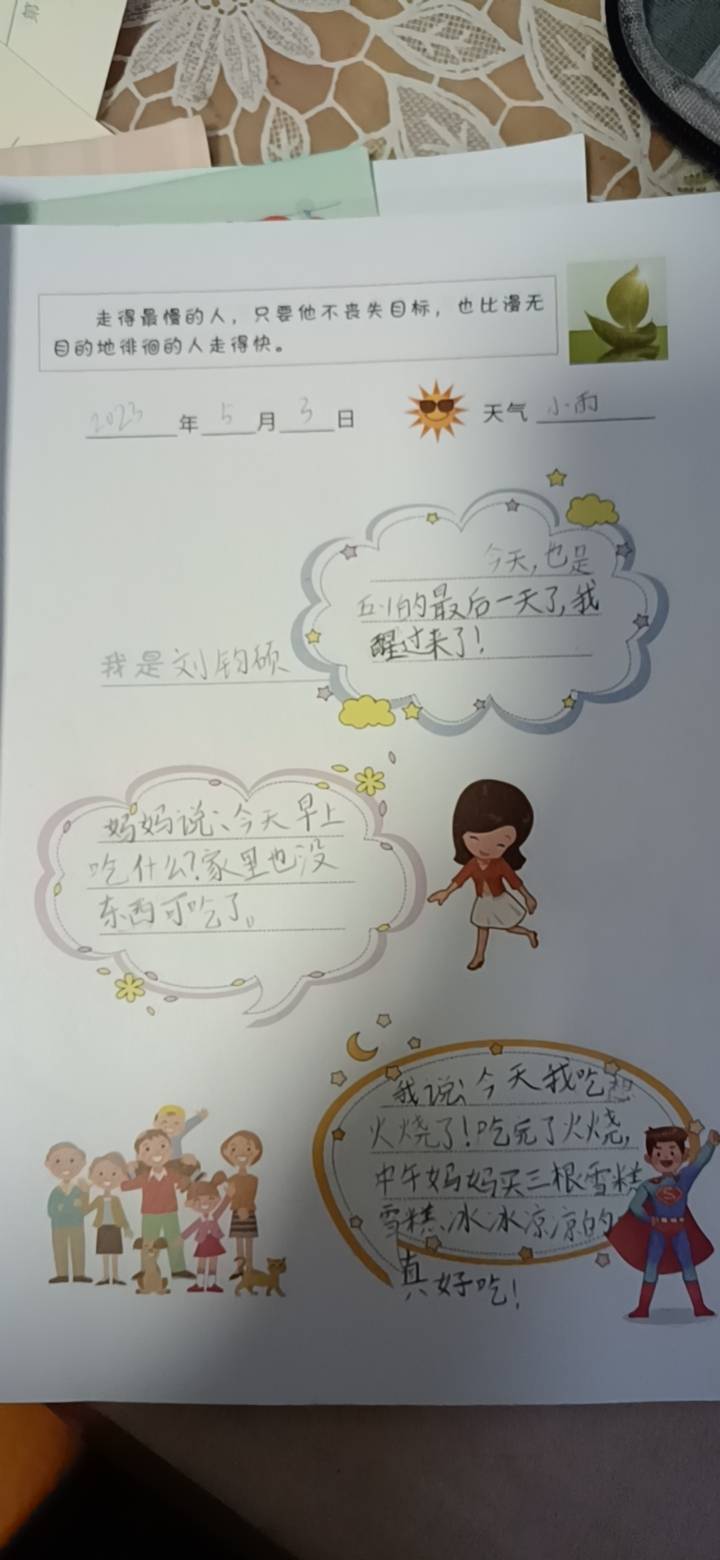 走得最慢的人，只要他不丧失目标，也比漫无
目的地徘徊的人走得快。
2023年5月3日
天气 小雨
今天,也是
五·1的最后一天了,我
醒过来了!
我是刘钧硕
妈妈说:今天早上
吃什么?家里也没
东西可吃了。
我说:今天我吃
火烧了!吃完了火烧,
中午妈妈买三根雪糕
雪糕、冰冰凉凉的
真好吃!